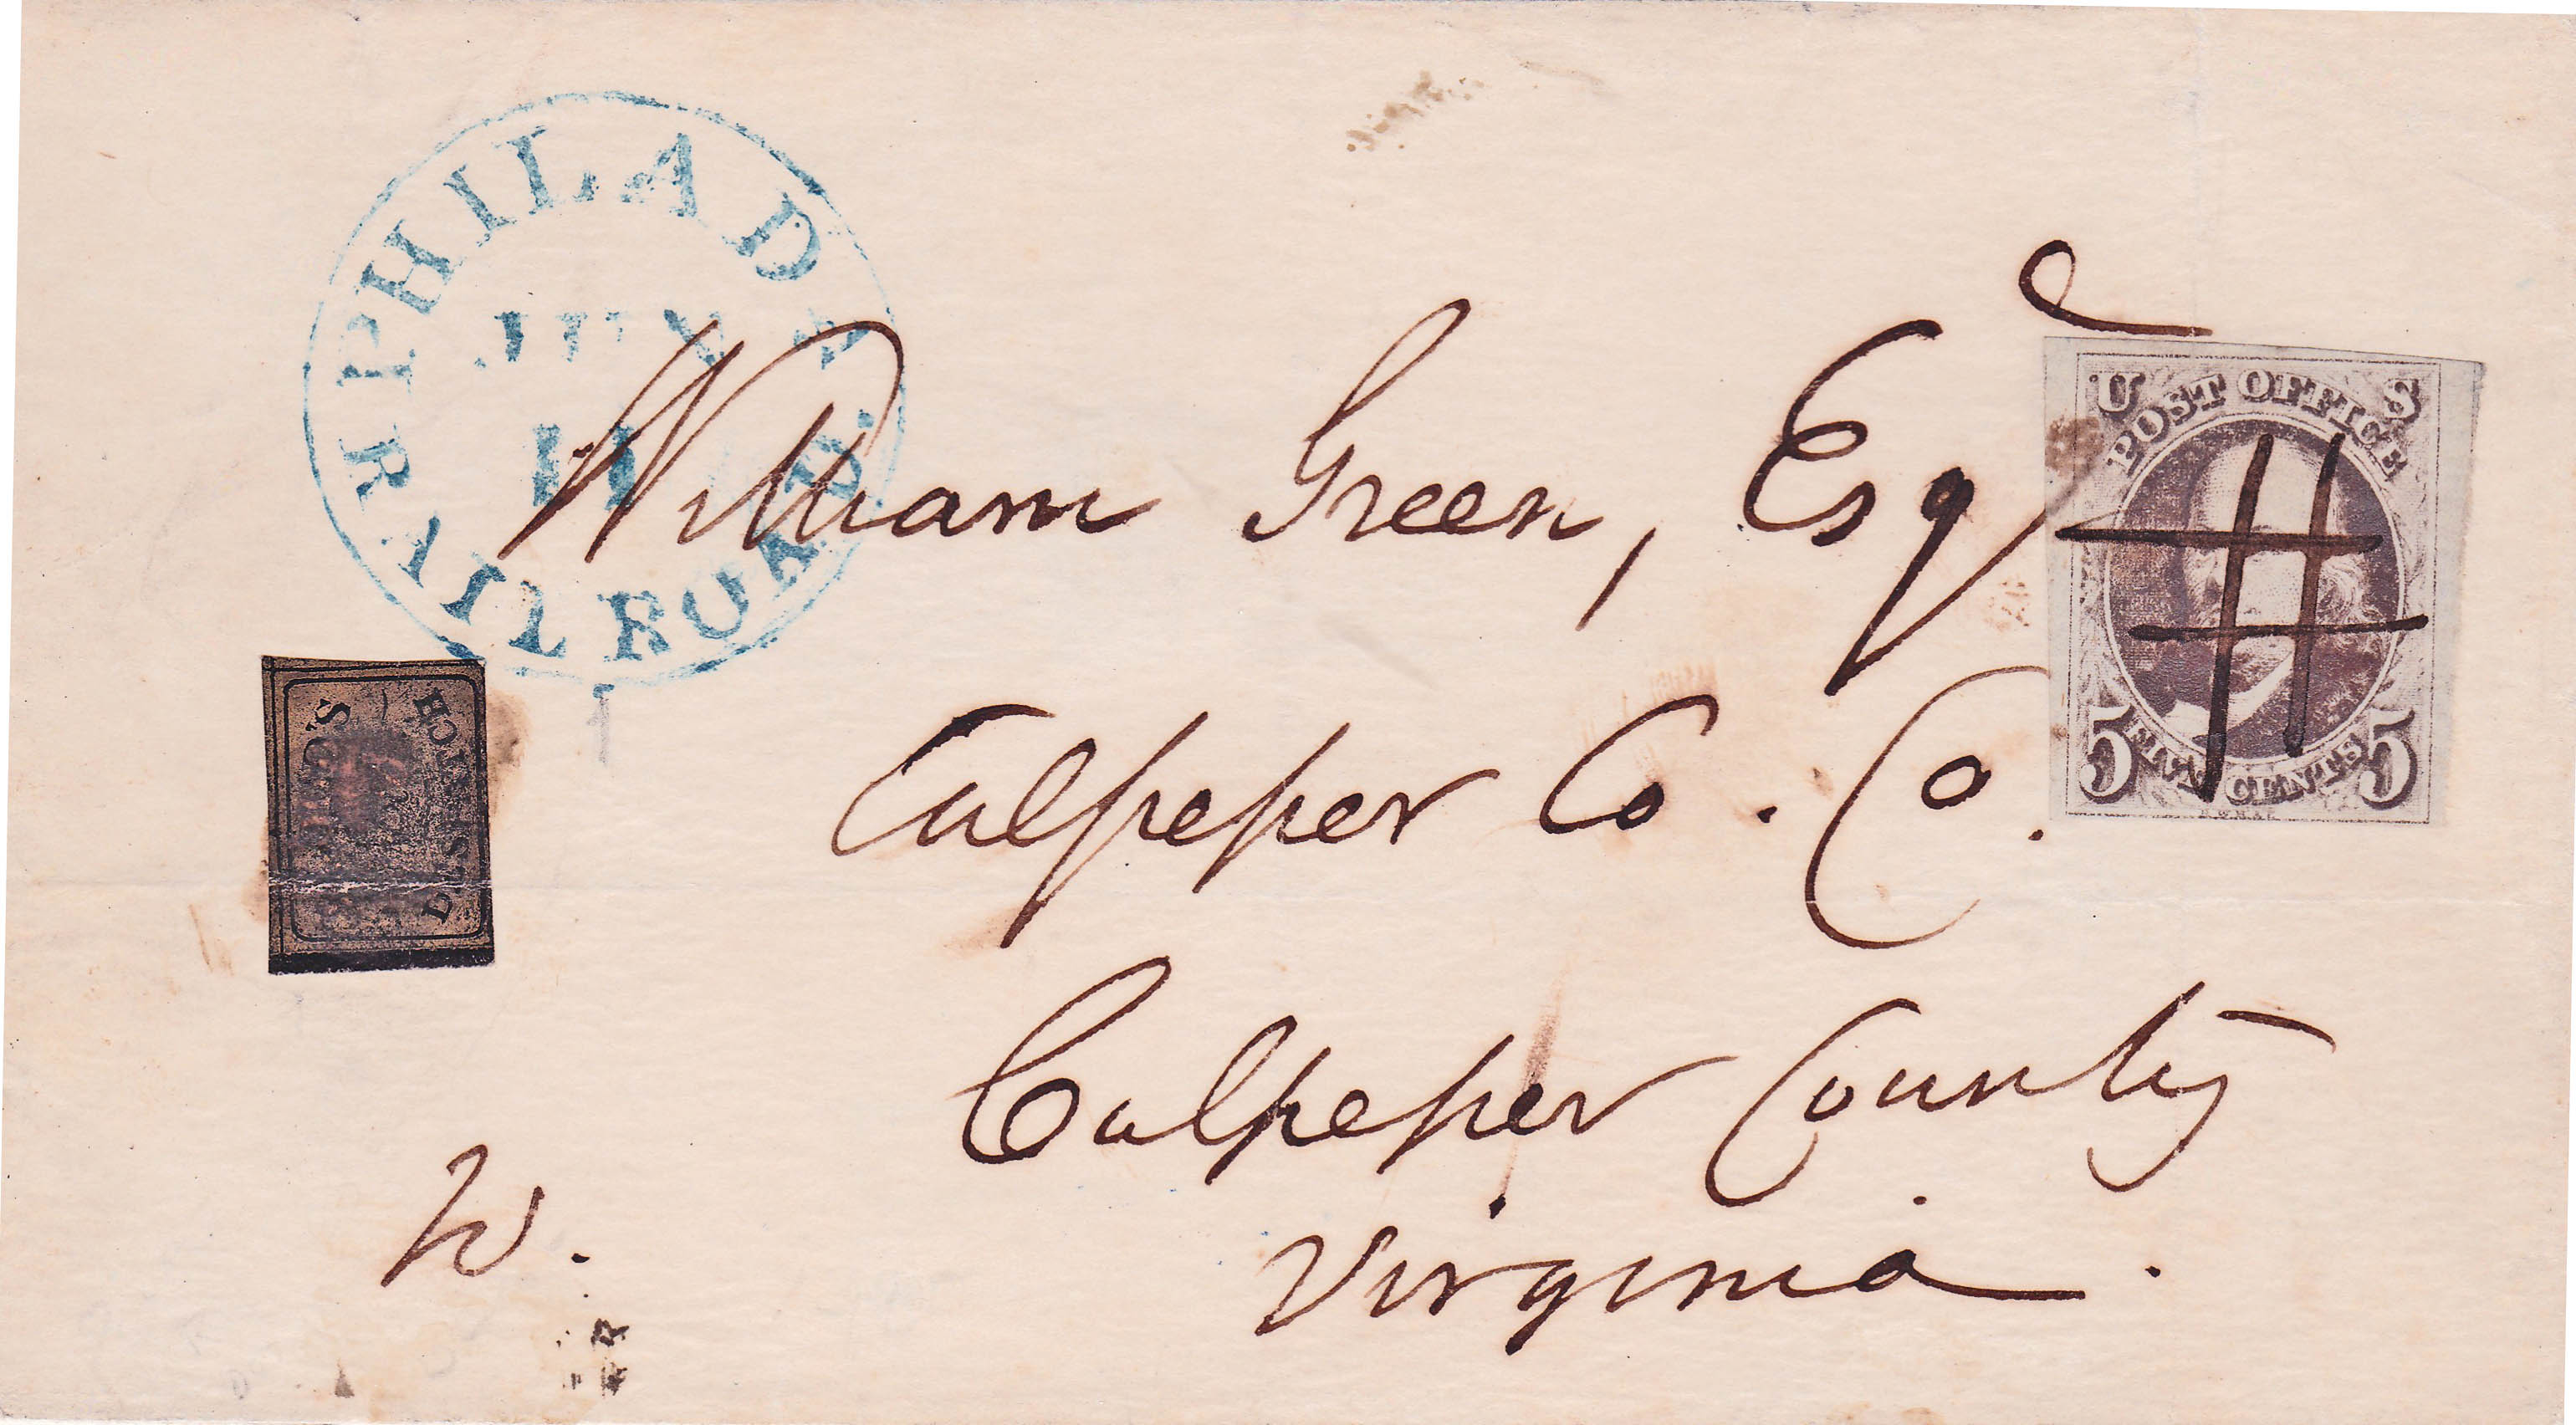 PHILADA. RAILROAD.
JULY
11
William Green, Esqr
Culpeper Co. Co.
Culpeper County
Virginia.
W.
DESPATCH
U S
POST OFFICE
5 FIVE CENTS 5